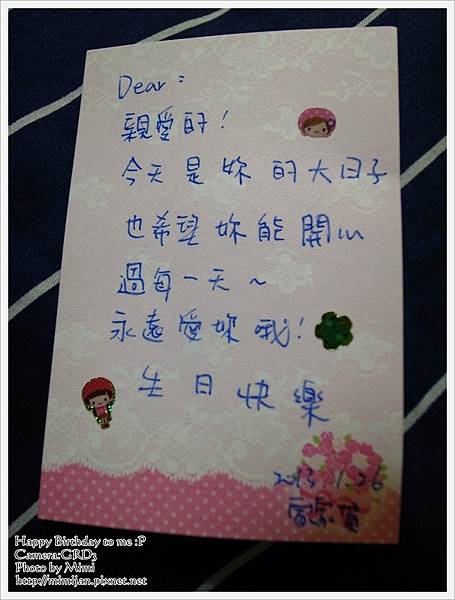 Dear：
親愛的！
今天是妳的大日子
也希望妳能開心
過每一天～
永遠愛妳哦！
生日快樂
2013.1.26
Happy Birthday to me :P
Camera:GRD3
Photo by Mimi
http://mimijan.pixnet.net